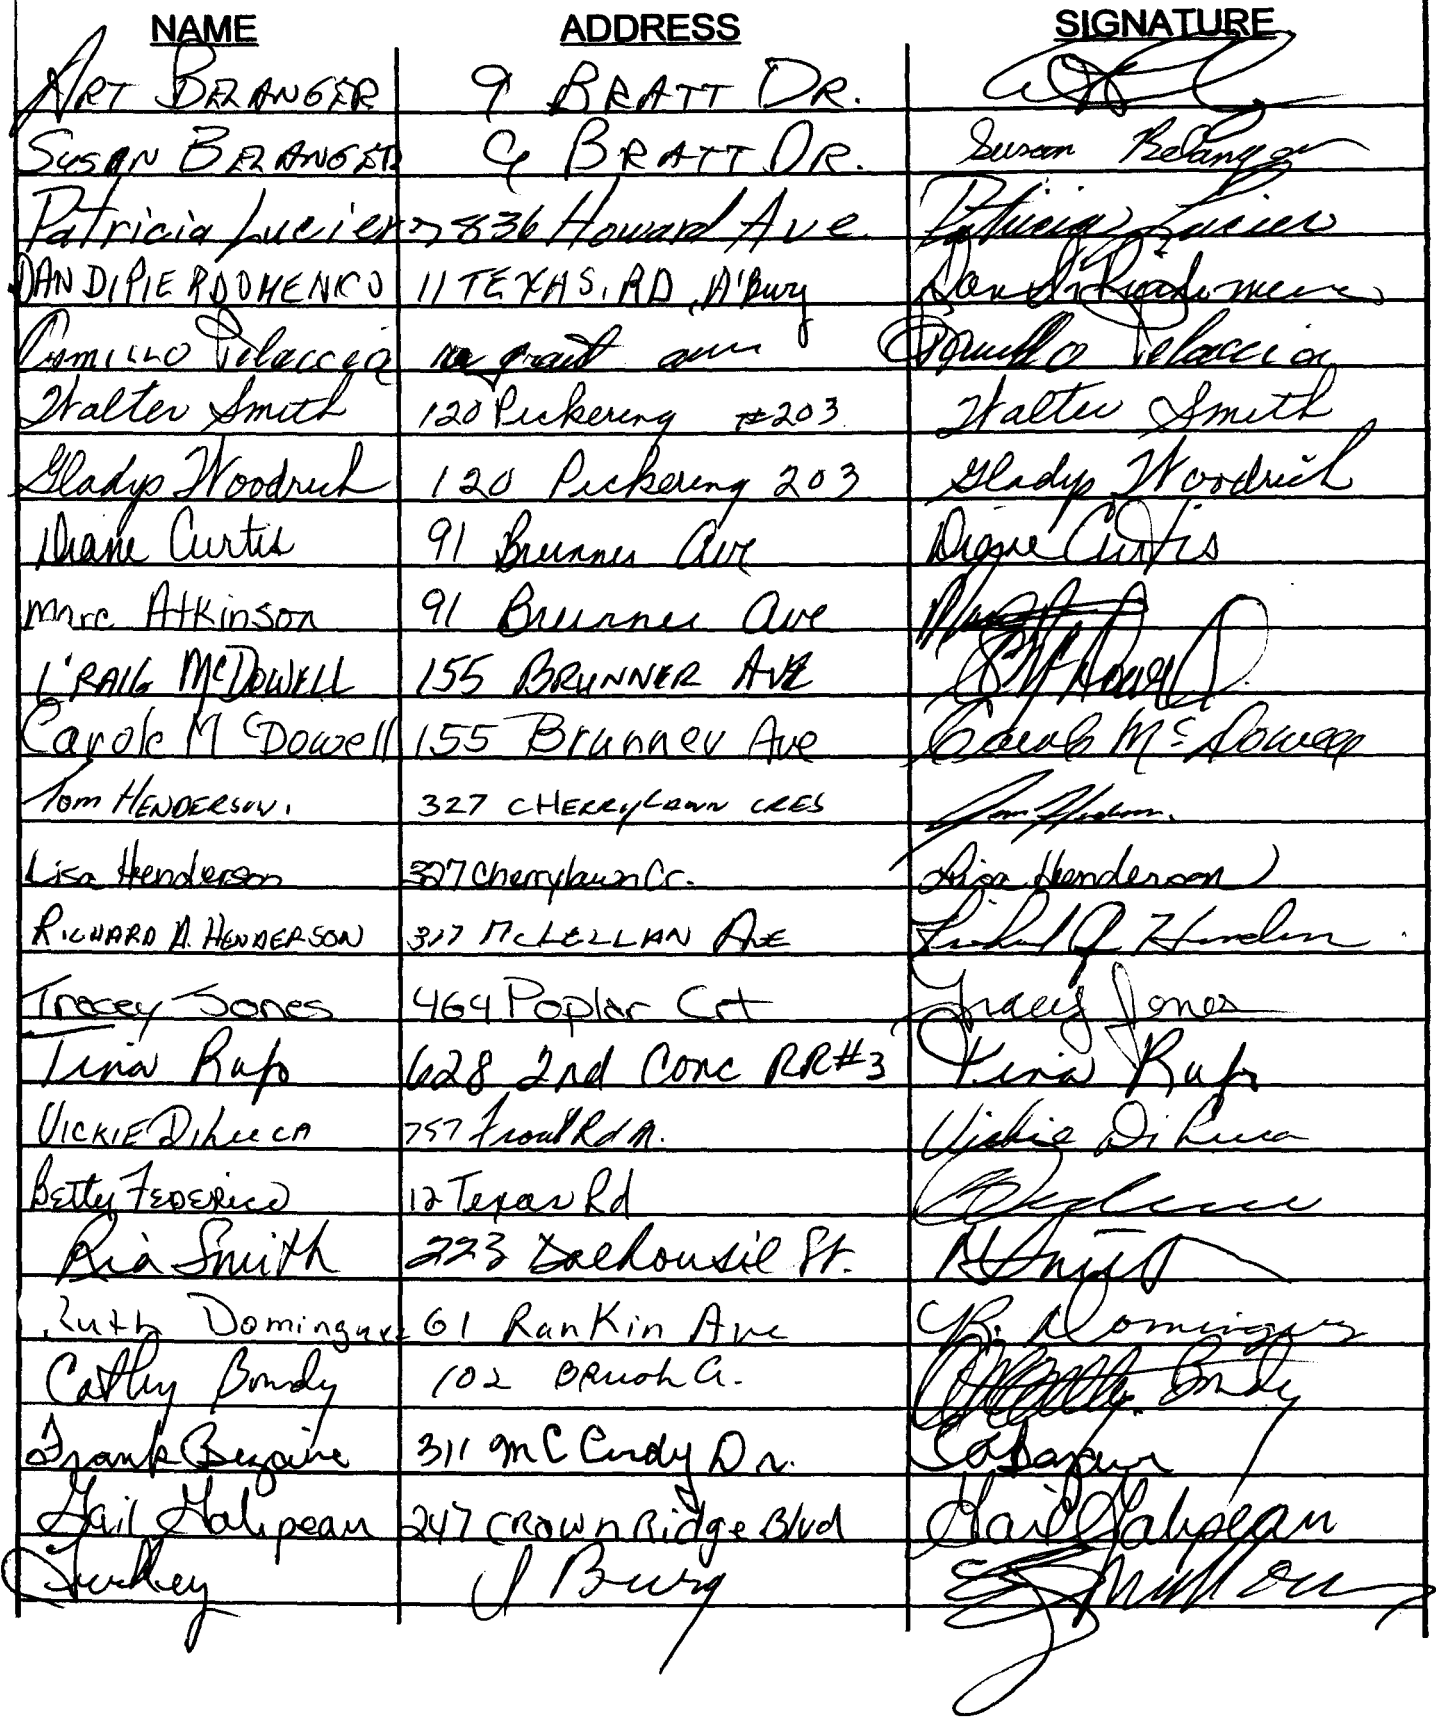 NAME ADDRESS SIGNATURE
ART BELANGER 9 BRATT DR.
SUSAN BELANGER 9 BRATT DR. Susan Belanger
Patricia Lucier 7836 Howard Ave. Patricia Lucier
DAN DIPIERDOMENICO 11 TEXAS, RD, A'Burg
CAMILLO Pelaccia Camillo Pelaccia
Walter Smith 120 Pickering #203 Walter Smith
Gladys Woodrich 120 Pickering 203 Gladys Woodrich
Diane Curtis 91 Brunner Ave Diane Curtis
Marc Atkinson 91 Brunner Ave
CRAIG McDOWELL 155 BRUNNER AVE C McDowell
Carole McDowell 155 Brunner Ave Carole McDowell
Tom HENDERSON. 327 CHERRYLAWN CRES Tom Henderson.
Lisa Henderson 327 Cherrylawn Cr. Lisa Henderson
RICHARD A. HENDERSON 317 McLELLAN AVE
Tracey Jones 464 Poplar Crt Tracey Jones
Tina Rufo 628 2nd Conc RR#3 Tina Rufo
VICKIE DiLuCA 757 Front Rd N. Vickie DiLuca
Betty FEDERICO 12 Texas Rd
Ria Smith 223 Dalhousie St. R Smith
Ruth Dominguez 61 Rankin Ave R. Dominguez
Cathy Bondy 102 BRush Cr. Cathy Bondy
Frank Bezaire 311 McCurdy Dr.
Gail Galipeau 247 Crown Ridge Blvd Gail Galipeau